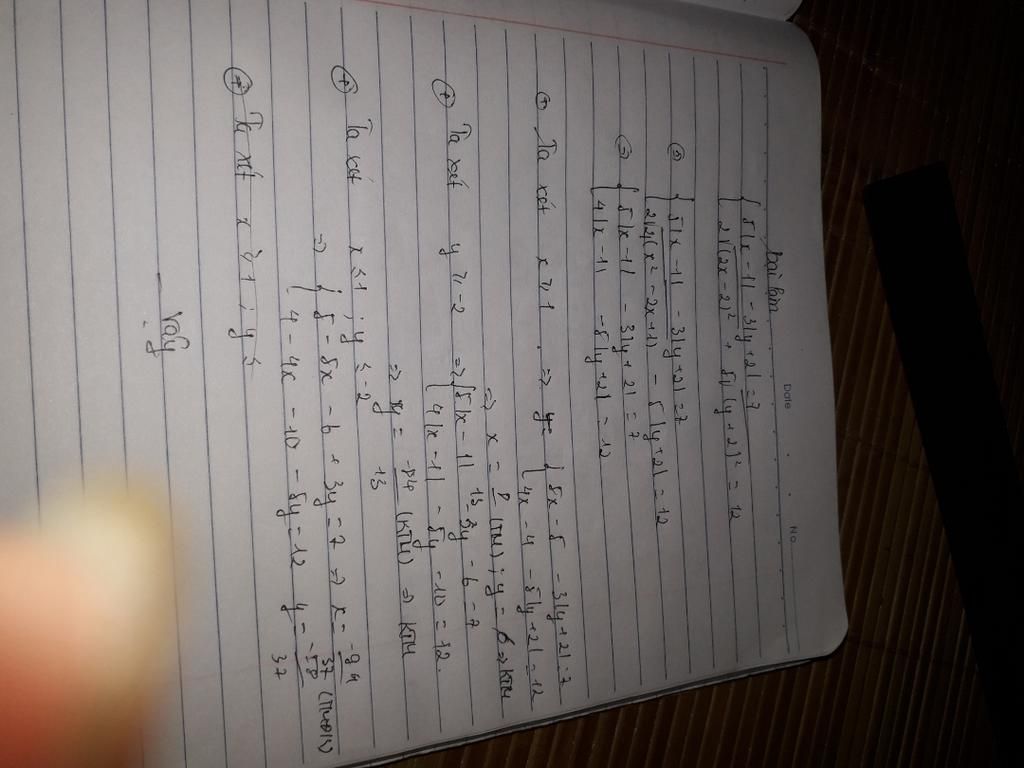 Date No.
Bài làm
{ 5|x - 1| - 3|y + 2| = 7
{ 2√(2x - 2)² + 5√(y + 2)² = 12
{ 5|x - 1| - 3|y + 2| = 7
{ 2√4(x² - 2x + 1) - 5|y + 2| = 12
⇔ { 5|x - 1| - 3|y + 2| = 7
{ 4|x - 1| - 5|y + 2| = 12
+ Ta xét x ≥ 1 ⇒ { 5x - 5 - 3|y + 2| = 7
{ 4x - 4 - 5|y + 2| = 12
⇒ x = (TM) ; y = ⇒ KTM
+ Ta xét y ≥ -2 ⇒ { 5|x - 1| - 3y - 6 = 7
{ 4|x - 1| - 5y - 10 = 12
⇒ y = /13 (KTM) ⇒ KTM
+ Ta xét x ≤ 1 ; y ≤ -2
⇒ { 5 - 5x - 6 + 3y = 7 ⇒ x = /37
{ 4 - 4x - 10 - 5y = 12 y = /37
+ Ta xét x ≥ 1 ; y ≤
Vậy